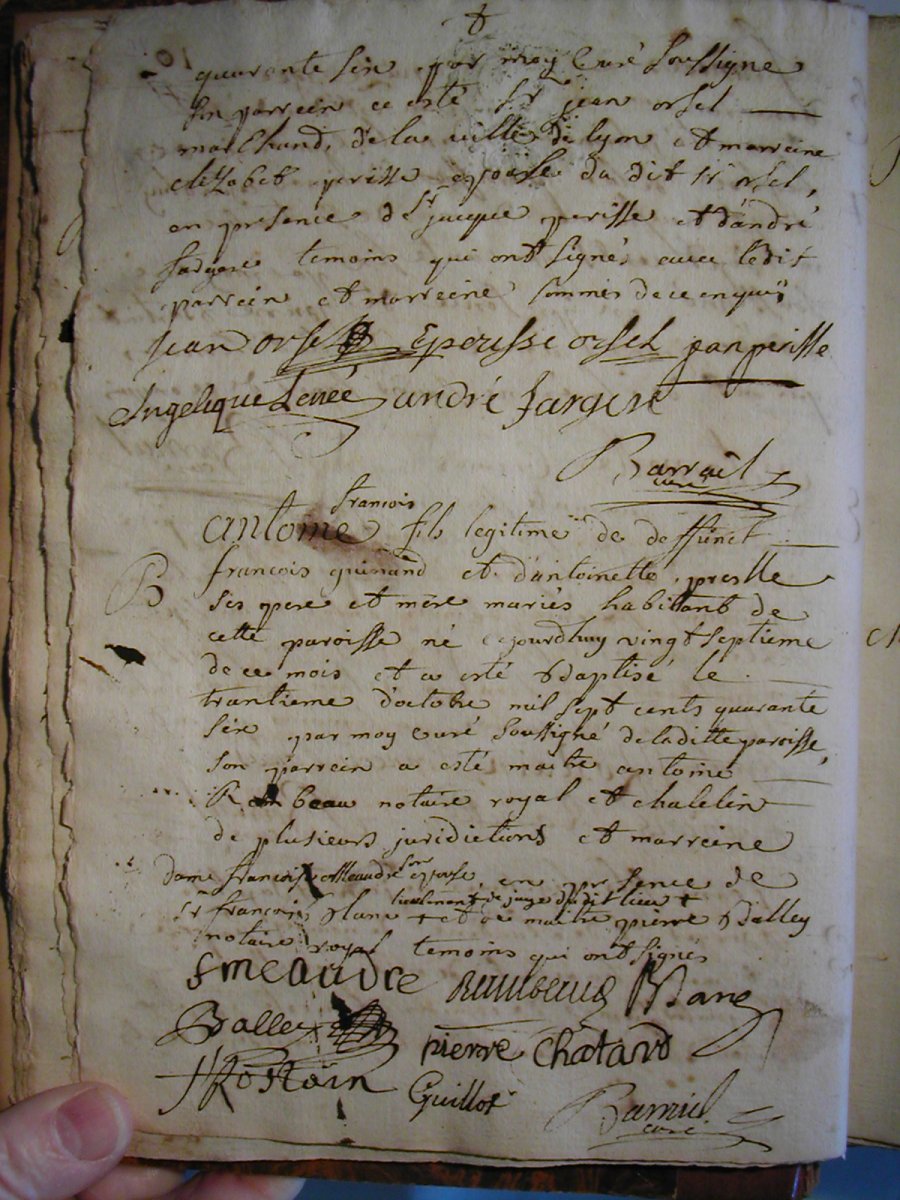 quarante six par moy Curé soussigne
son parrein a esté Sr jean orsel
marchand, de la ville de lyon et marreine
elizabet perisse epouse du dit sr orsel,
en presence de Sr jacque perisse et d'andré
temoins qui ont signés avec ledit
parrein et marreine sommés de ce enquis
jean orsel Eperisse orsel jan perisse
Angelique andré fargere
Barrail
curé
françois
antoine fils legitime de deffunct
B
francois guinand et d'antoinette presle
ses pere et mere mariés habitant de
cette paroisse né cejourdhuy vingt septieme
de ce mois et a esté Bdaptisé le
trantieme d'octobre mil sept cents quarante
six par moy curé soussigné de laditte paroisse,
son parrein a esté maitre antoine
Rambeau notaire royal et chatelin
de plusieurs juridictions et marreine
dame françoise Meaudre son epouse en presence de
lieutenant de juge du dit lieu +
sr françois blanc + et de maitre pierre Balley
notaire royal temoins qui ont signés
f meaudre Rambeaud Blanc
Balley pierre Chatard
Rostain Guillot
Barrail
curé